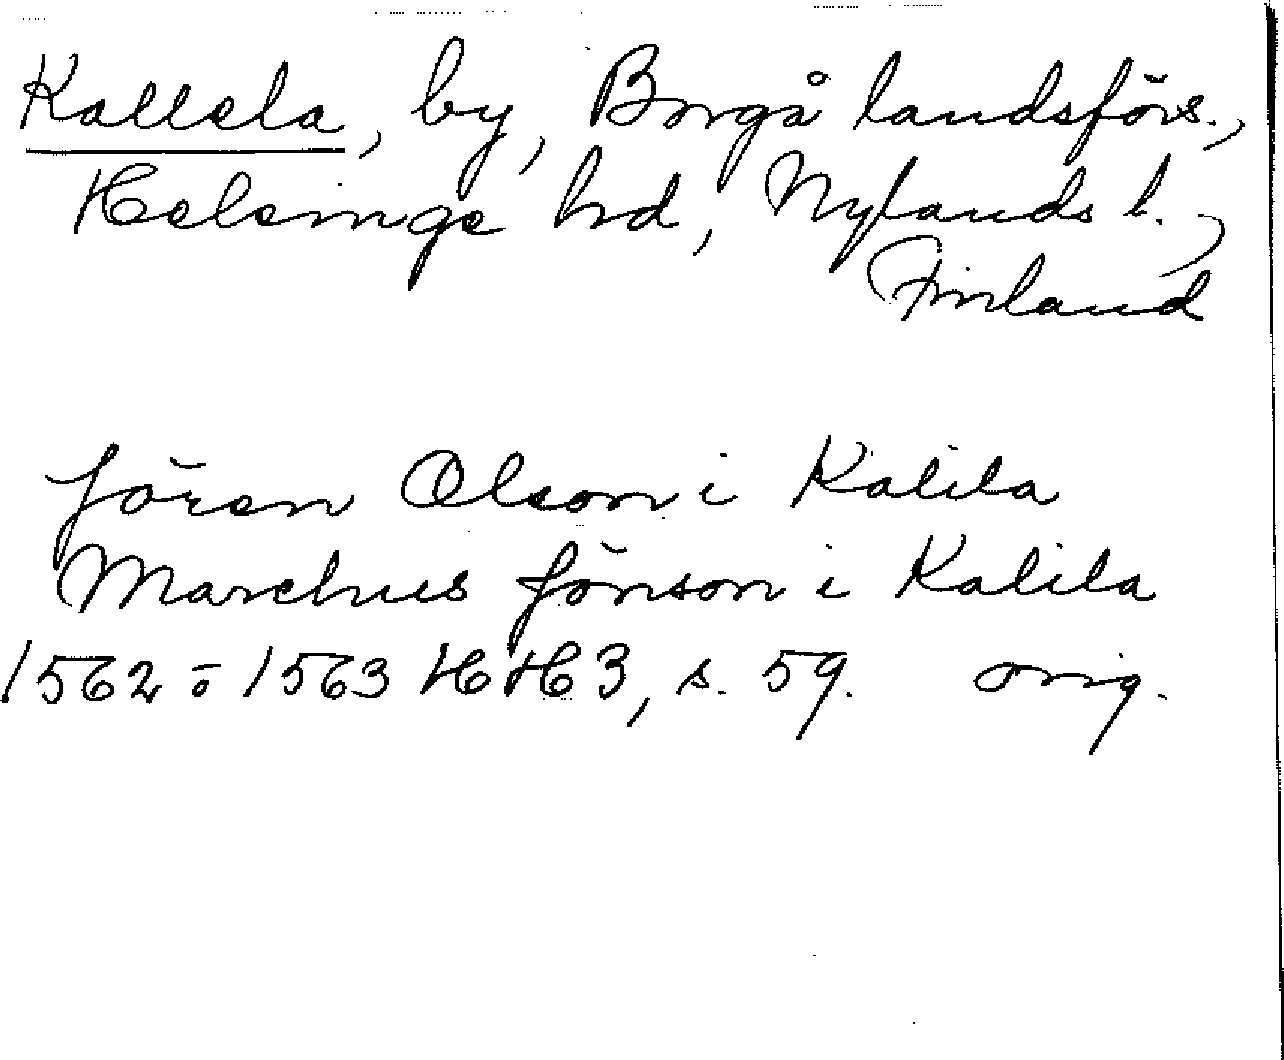 Kallela, by, Borgå landsförs.,
Helsinge hrd, Nylands l.,
Finland
Jören Olson i Kalila
Marchus Jönson i Kalila
1562 o 1563 HH 3, s. 59. orig.